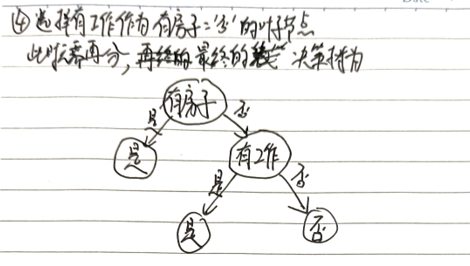 ④选择有工作作为有房子='否'的叶子节点
此时不需再分,最终的决策树为
有房子
是 否
是 有工作
是 否
是 否